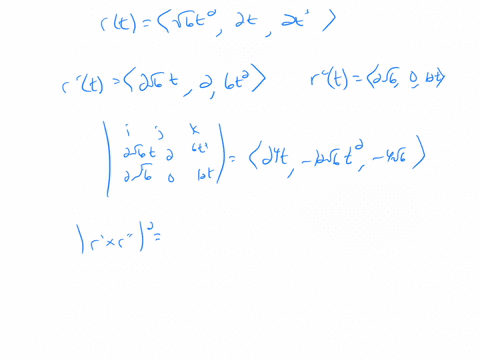 r(t) = ⟨√6t², 2t, 2t³⟩
r'(t) = ⟨2√6 t, 2, 6t²⟩ r''(t) = ⟨2√6, 0, 12t⟩
| i j k |
| 2√6t 2 6t² | = ⟨24t, -12√6 t², -4√6⟩
| 2√6 0 12t |
|r' × r''|² =